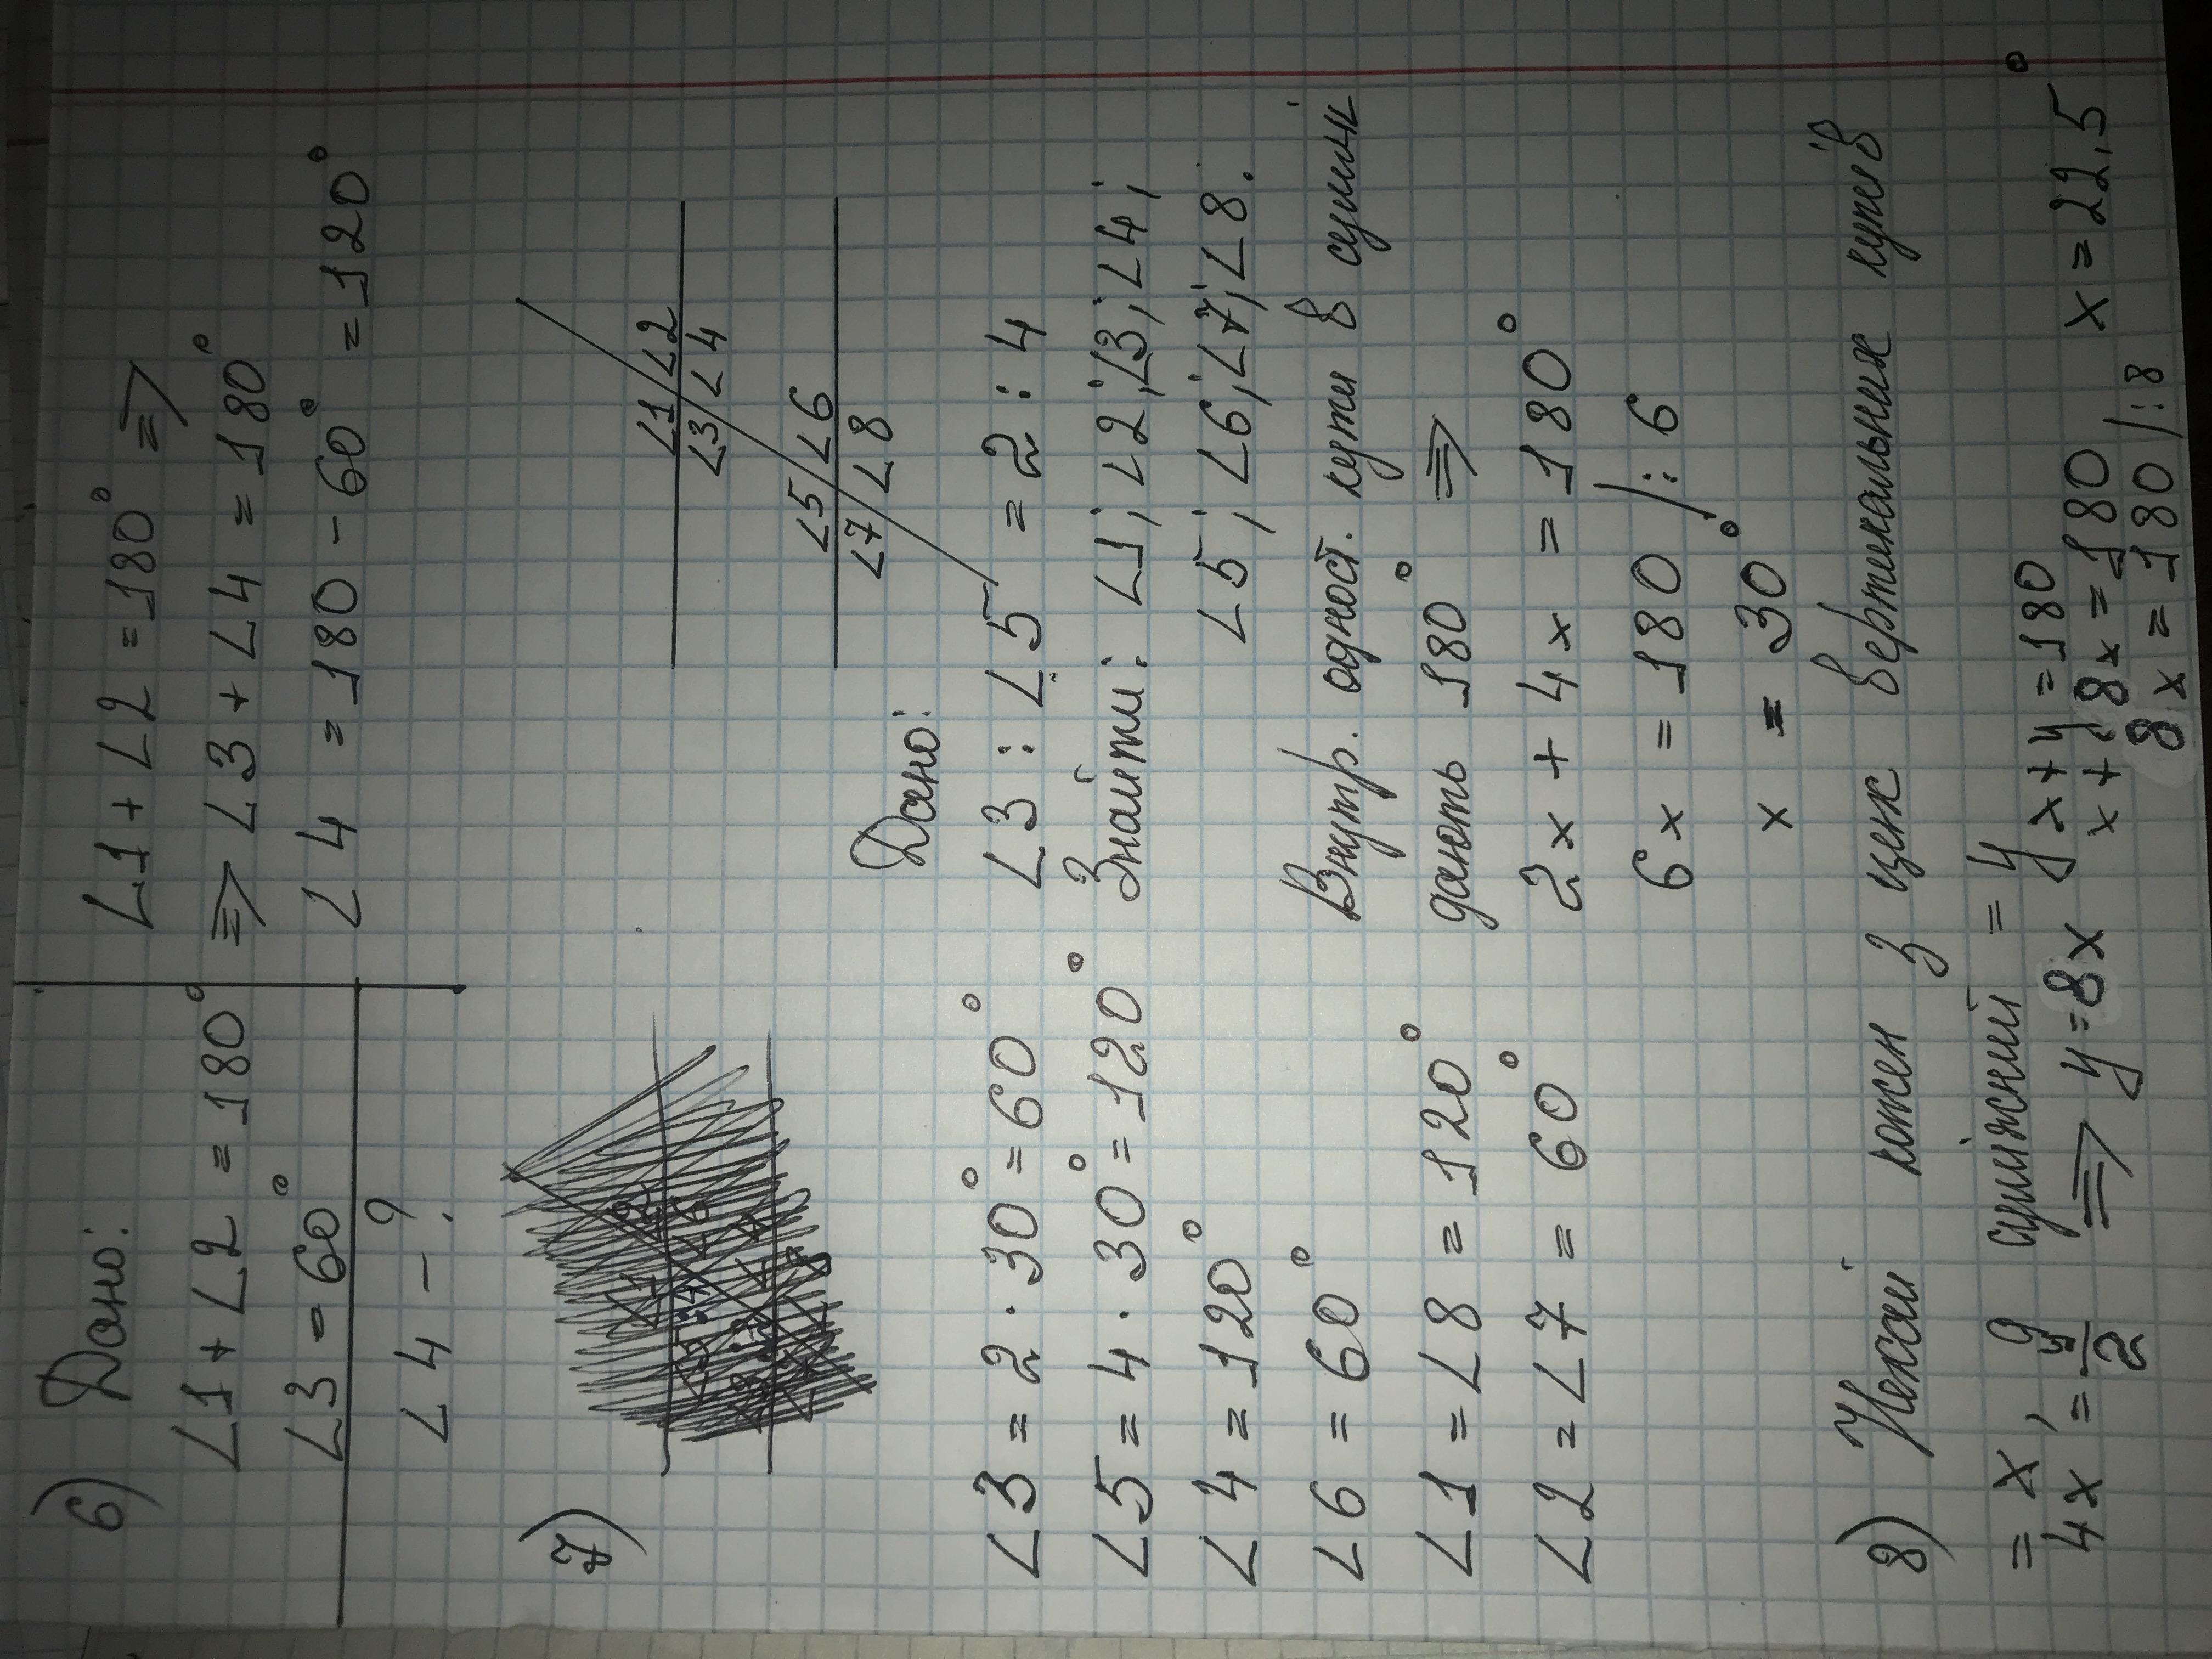 6) Дано:
∠1 + ∠2 = 180°
∠3 = 60°
∠4 - ?
∠1 + ∠2 = 180° =>
=> ∠3 + ∠4 = 180°
∠4 = 180 - 60° = 120°
7)
∠1 ∠2
∠3 ∠4
∠5 ∠6
∠7 ∠8
Дано:
∠3 : ∠5 = 2 : 4
Знайти: ∠1; ∠2; ∠3; ∠4;
∠5; ∠6; ∠7; ∠8.
Внутр. одност. кути в сумі
дають 180° =>
2x + 4x = 180°
6x = 180 /: 6
x = 30°
∠3 = 2 · 30° = 60°
∠5 = 4 · 30° = 120°
∠4 = 120°
∠6 = 60°
∠1 = ∠8 = 120°
∠2 = ∠7 = 60°
8) Нехай кожен з цих вертикальних кутів
= x, суміжний = y
4x = y/2 => y = 8x
x + y = 180
x + 8x = 180
8x = 180 /: 8
x = 22,5°